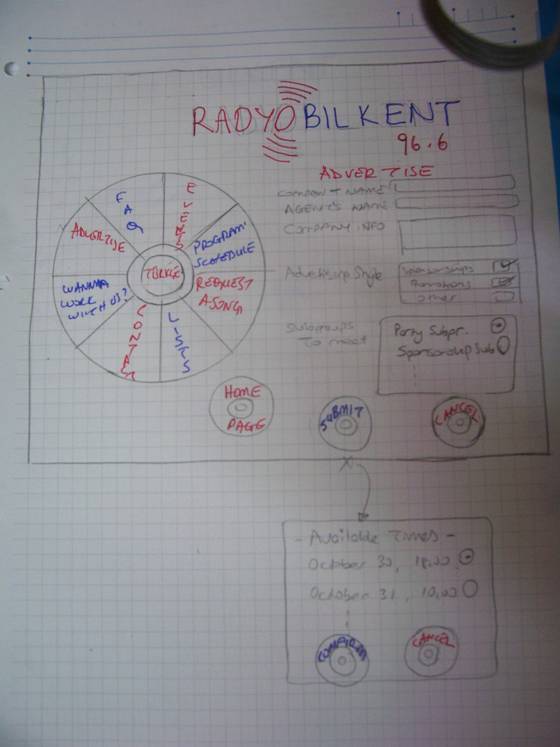 RADYO BILKENT
96.6
ADVERTISE
COMPANY NAME
AGENT'S NAME
COMPANY INFO
Advertising Style
Sponsorships
Promotions
Other
Subgroups
To meet
Party Subgr.
Sponsorship Sub
FAQ
EVENTS
PROGRAM
SCHEDULE
REQUEST
A SONG
LISTS
CONTACT
WANNA
WORK
WITH US?
ADVERTISE
TÜRKÇE
HOME
PAGE
SUBMIT
CANCEL
- Available Times -
October 30, 18.00
October 31, 10.00
CONFIRM
CANCEL